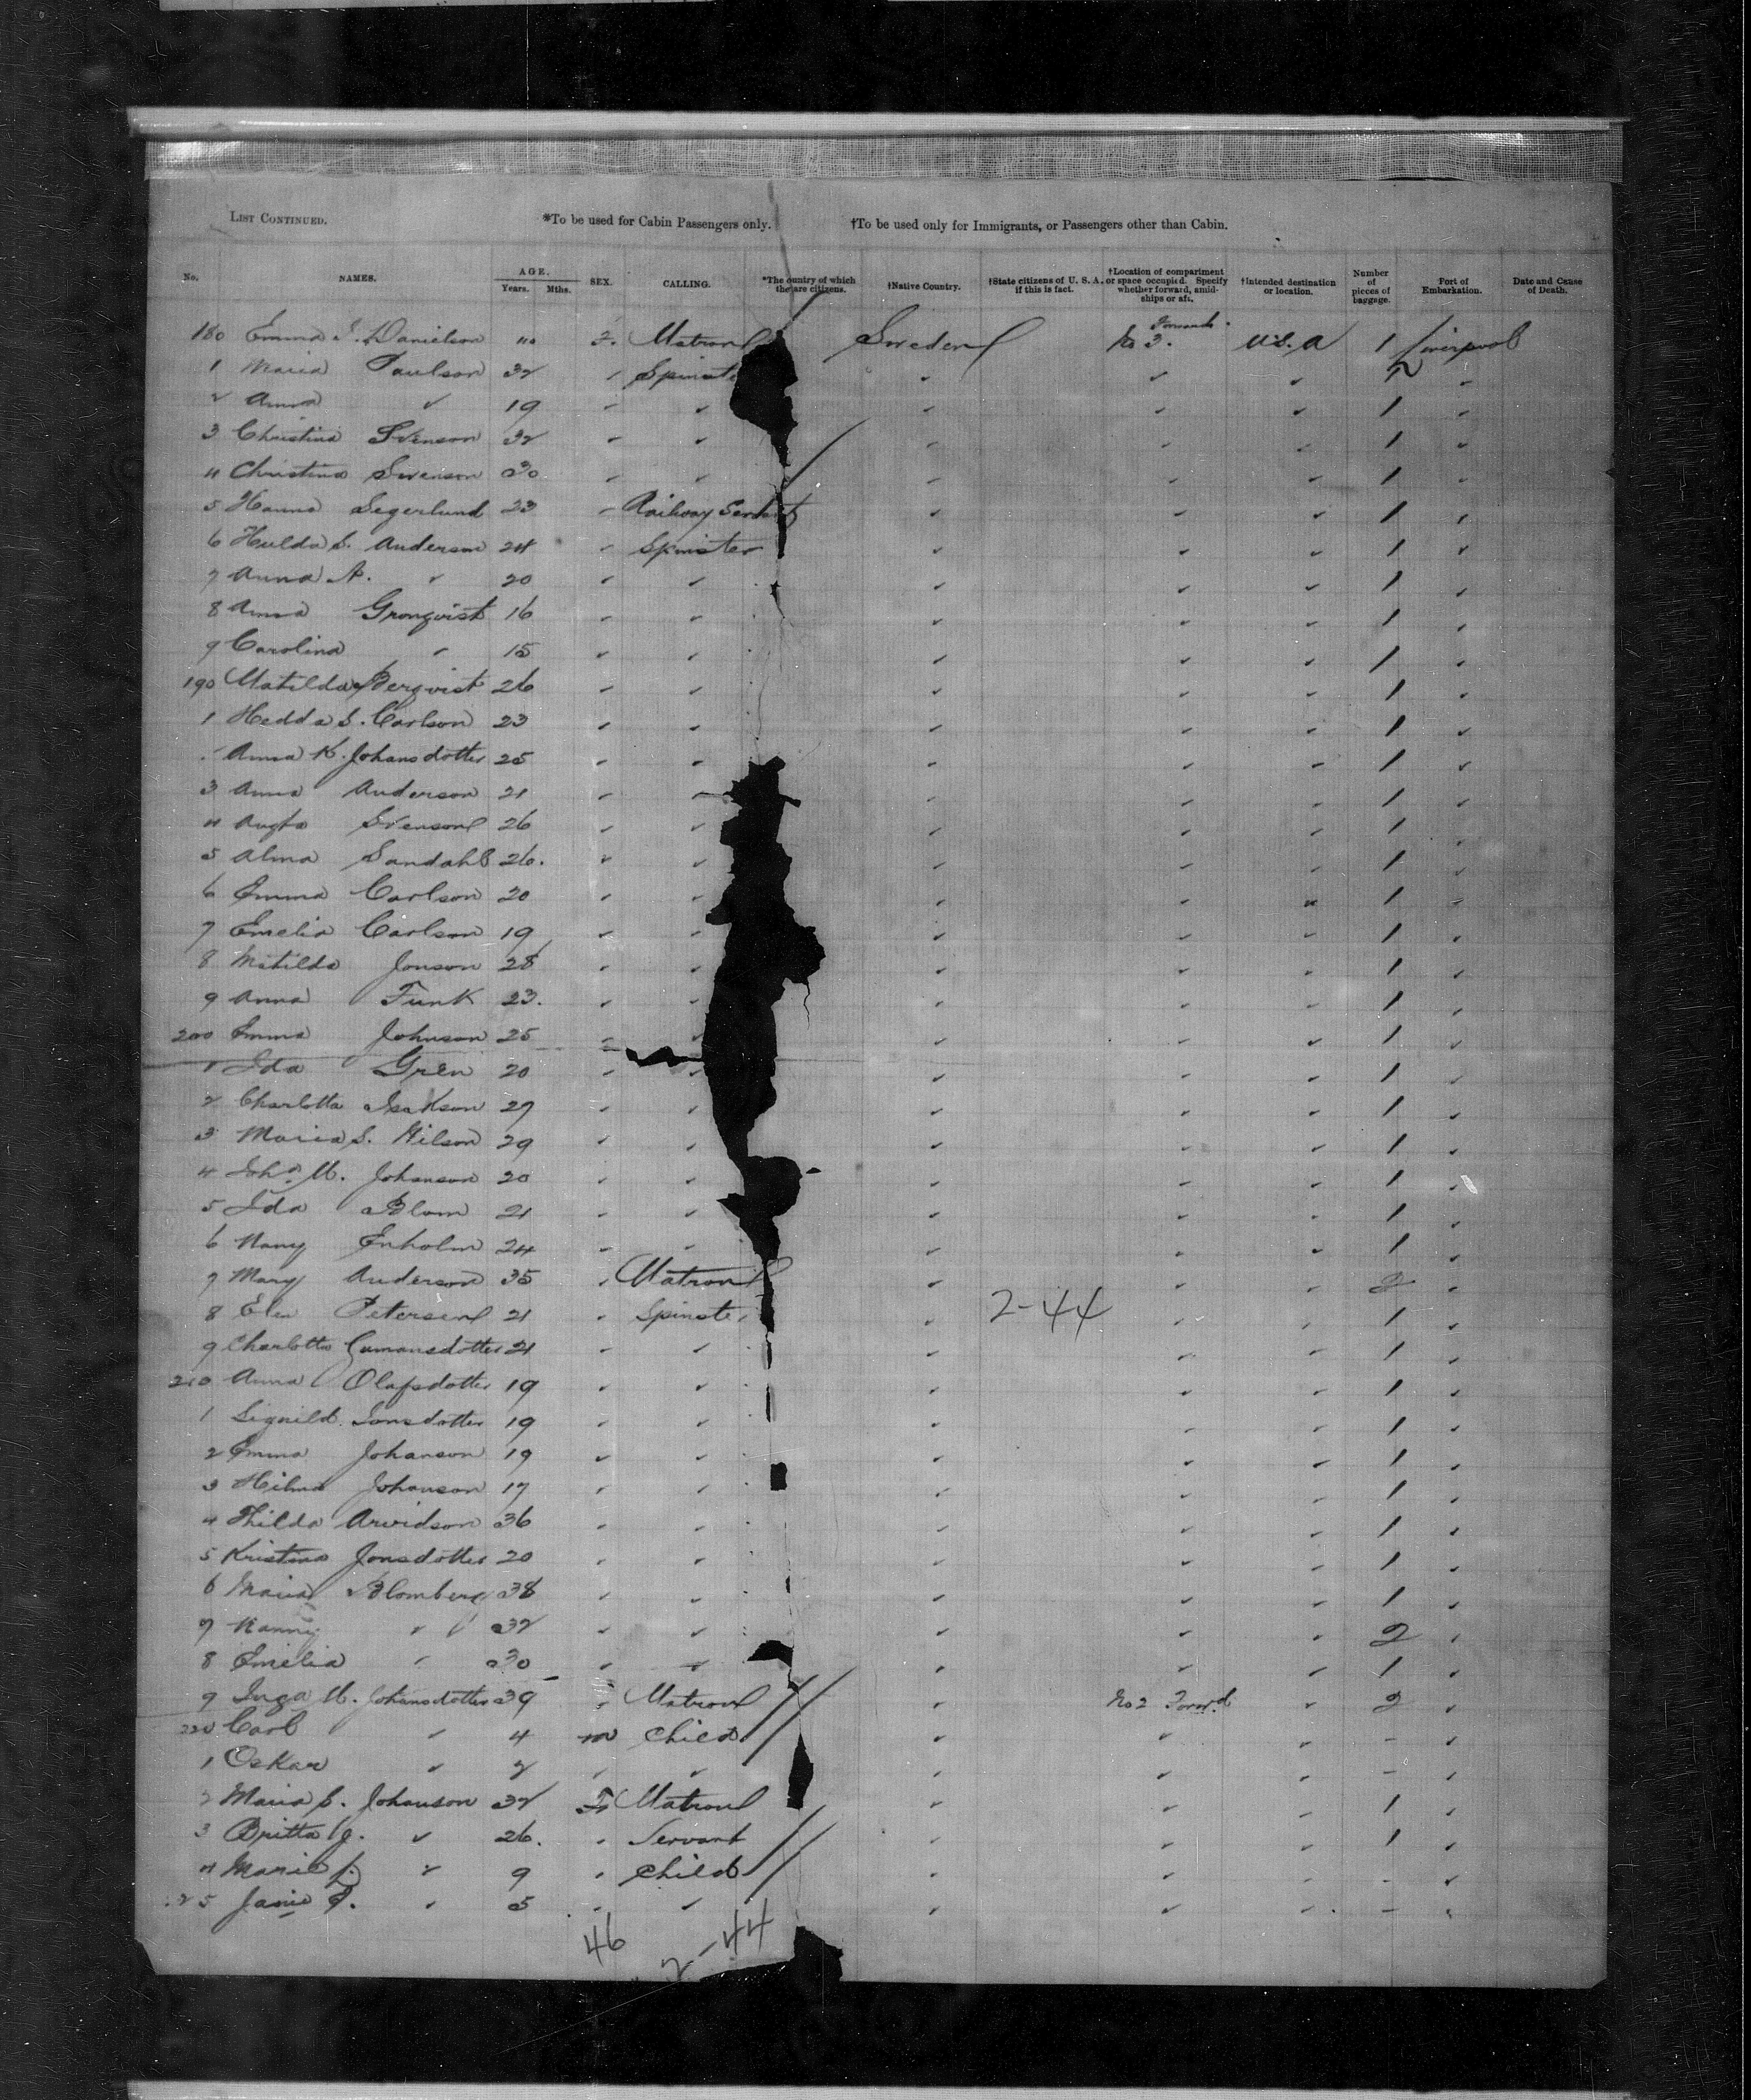 LIST CONTINUED. *To be used for Cabin Passengers only. †To be used only for Immigrants, or Passengers other than Cabin.
No. NAMES. AGE. Years. Mths. SEX. CALLING. *The country of which they are citizens. †Native Country. †State citizens of U. S. A. if this is fact. †Location of compartment or space occupied. Specify whether forward, amidships or aft. †Intended destination or location. Number of pieces of baggage. Port of Embarkation. Date and Cause of Death.
180 Emma J. Danielson 40 F. Matron Sweden No 3. Forward U.S.A 1 Liverpool
1 Maria Paulson 32 Spinster
2 Anna " 19 " " " " " 1 "
3 Christina Svenson 32 " " " " " 1 "
4 Christina Svenson 30 " " " " " 1 "
5 Hanna Segerlund 23 " Railway Servant " " " 1 "
6 Hulda S. Anderson 24 " Spinster " " " 1 "
7 Anna A. " 20 " " " " " 1 "
8 Anna Gronqvist 16 " " " " " 1 "
9 Carolina " 15 " " " " " 1 "
190 Matilda Bergvist 26 " " " " " 1 "
1 Hedda S. Carlson 23 " " " " " 1 "
Anna K. Johansdotter 25 " " " " " 1 "
3 Anna Anderson 21 " " " " " 1 "
4 Augta Svenson 26 " " " " " 1 "
5 Alma Sandahl 26. " " " " " 1 "
6 Emma Carlson 20 " " " " " 1 "
7 Emelia Carlson 19 " " " " " 1 "
8 Matilda Jonson 28 " " " " " 1 "
9 Anna Funk 23. " " " " " 1 "
200 Emma Johnson 25 " " " " " 1 "
1 Ida Gren 20 " " " " " 1 "
2 Charlotta Isakson 27 " " " " " 1 "
3 Maria S. Nilson 29 " " " " " 1 "
4 Joha M. Johanson 20 " " " " " 1 "
5 Ida Blom 21 " " " " " 1 "
6 Nany Enholm 24 " " " " " 1 "
7 Mary Anderson 35 " Matron " " " 2 "
8 Elen Peterson 21 " Spinster " 2-44 " " 1 "
9 Charlotta 21 " " " " " 1 "
210 Anna Olafsdotter 19 " " " " " 1 "
1 Signild Jonsdotter 19 " " " " " 1 "
2 Emma Johanson 19 " " " " " 1 "
3 Hilma Johanson 17 " " " " " 1 "
4 Thilda Arvidson 36 " " " " " 1 "
5 Kristina Jonsdotter 20 " " " " " 1 "
6 Maria Blomberg 38 " " " " " 1 "
7 Nanny " 32 " " " " " 2 "
8 Emelia " 30 " " " " " 1 "
9 Inga M. Johansdotter 39 " Matron " No 2 Forwd. " 2 "
220 Carl " 4 m Child " " " - "
1 Oskar " 2 " " " " " - "
2 Maria C. Johanson 32 F Matron " " " 1 "
3 Britta J. " 26. " Servant " " " 1 "
4 Maria " 9 " Child " " " - "
25 " 5 " " " " " - "
46 2-44